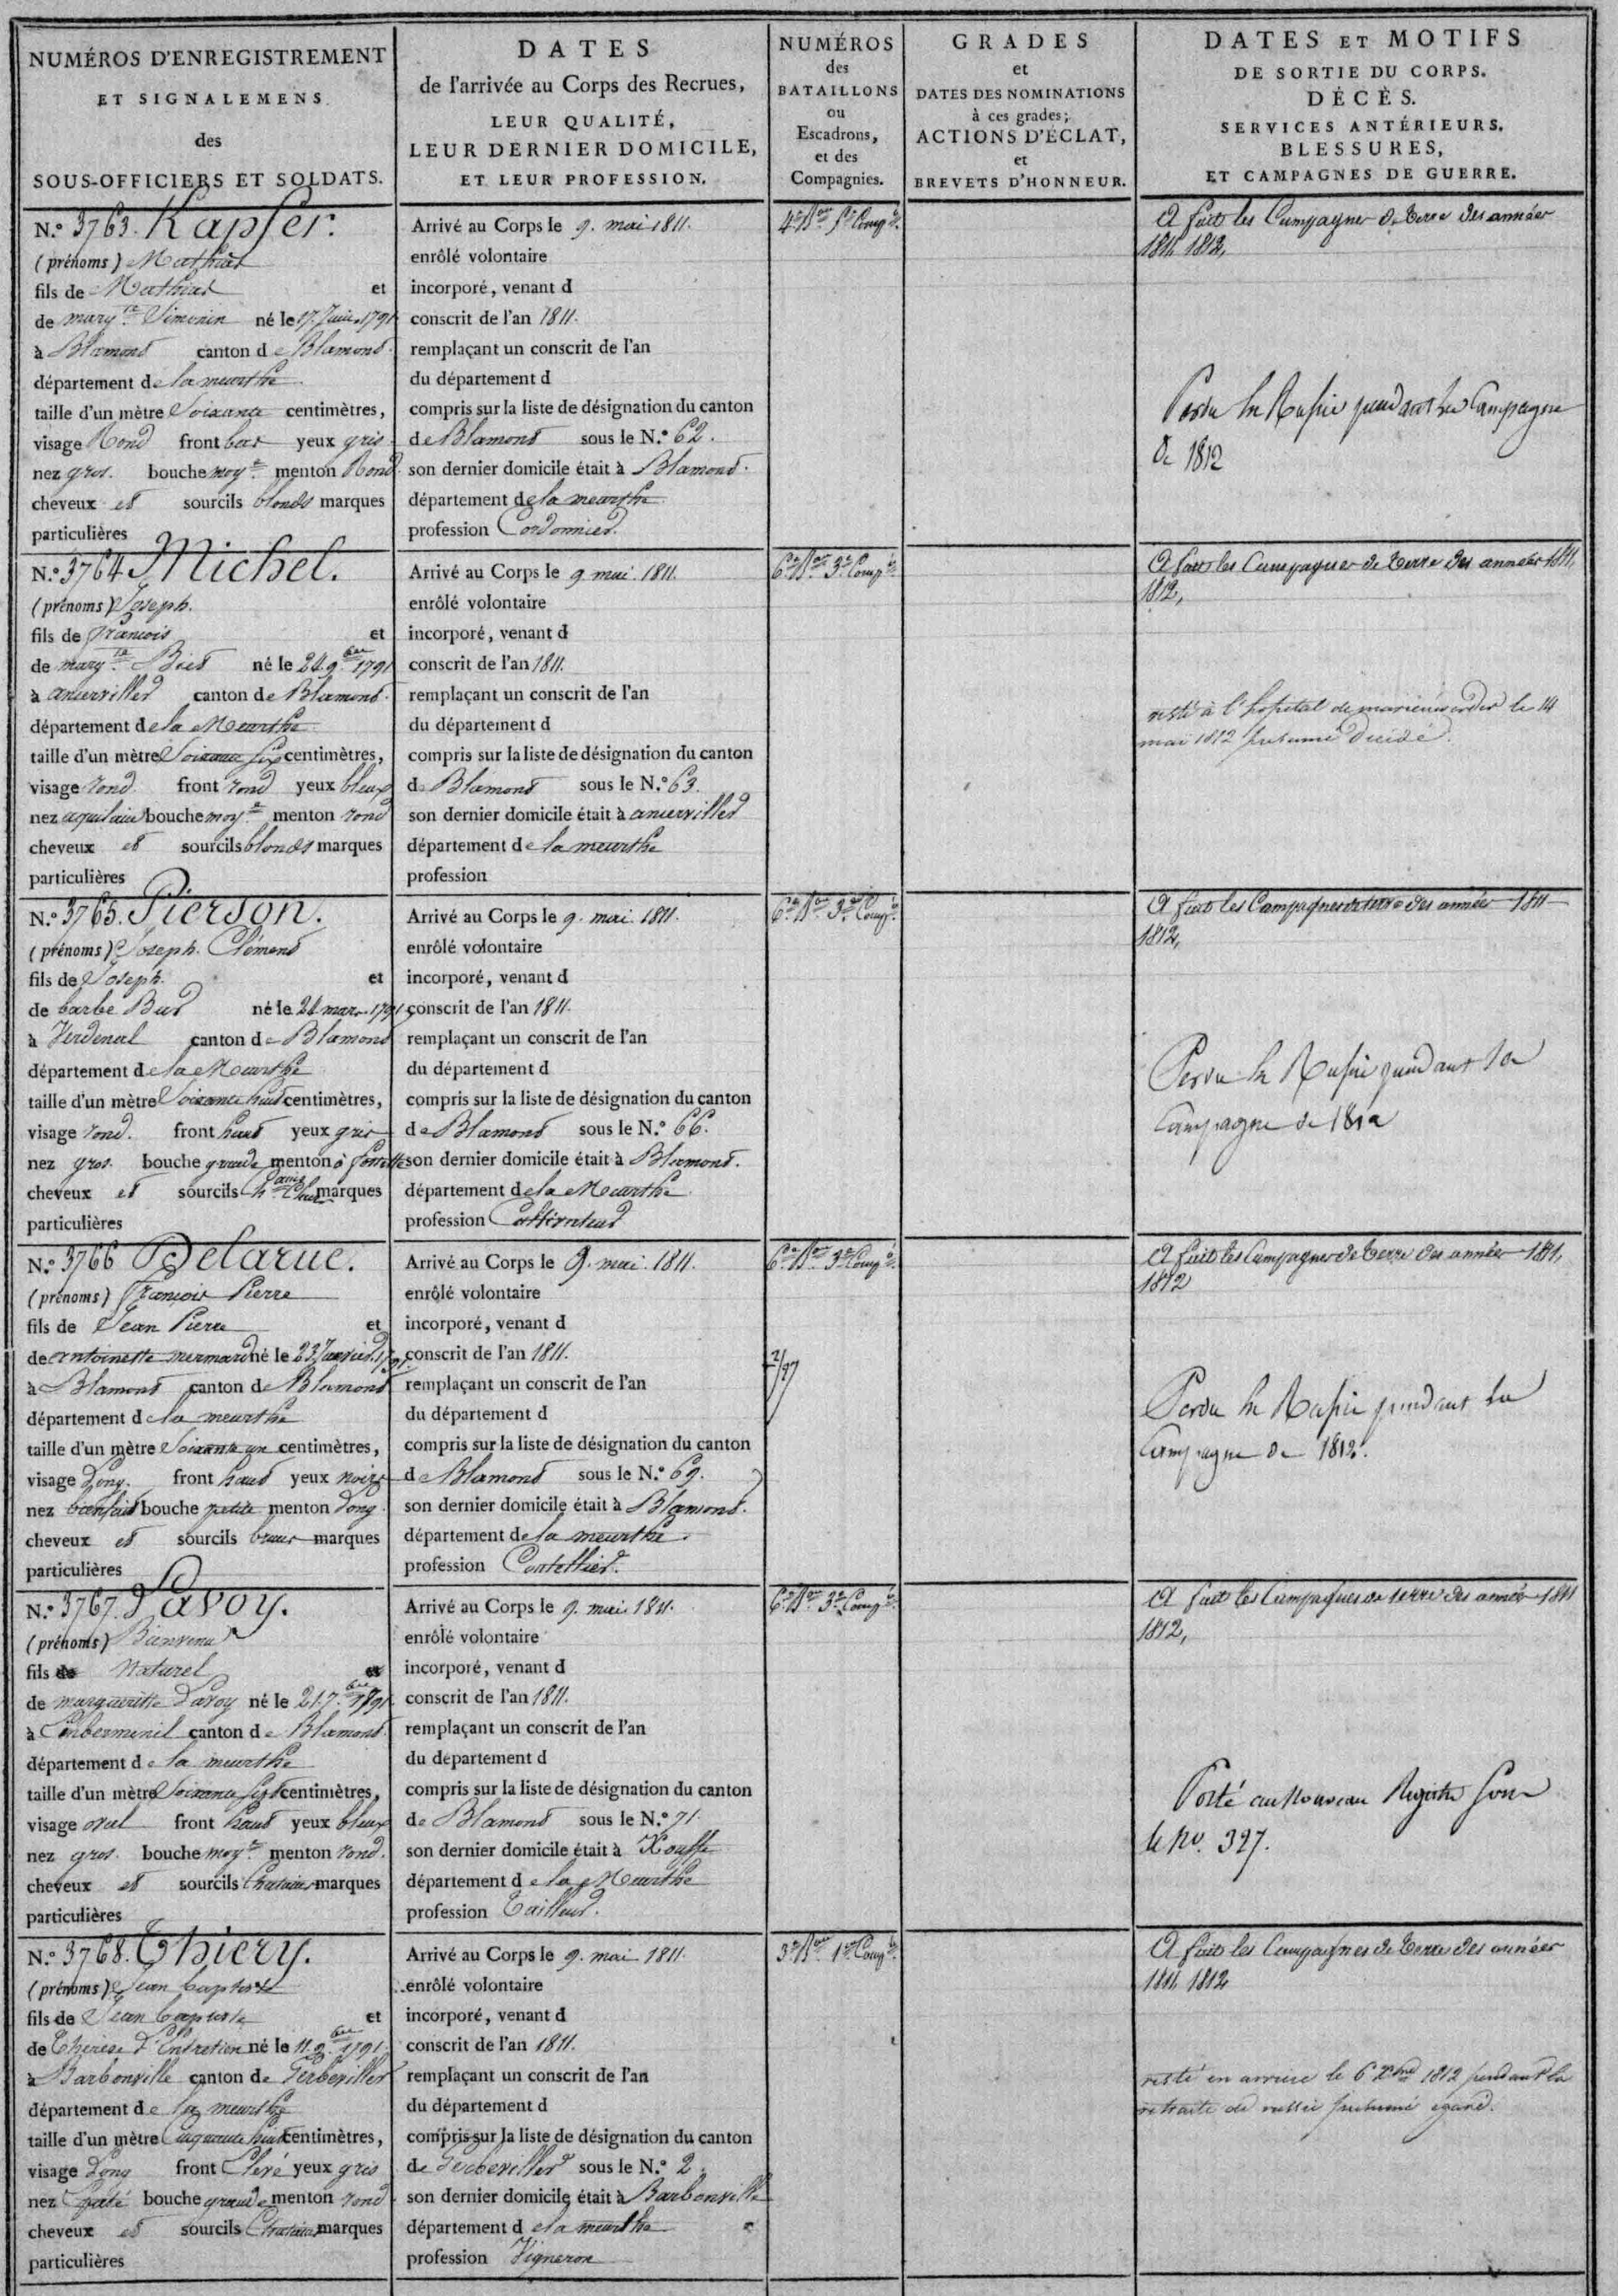 NUMÉROS D'ENREGISTREMENT
ET SIGNALEMENS
des
SOUS-OFFICIERS ET SOLDATS.
DATES
de l'arrivée au Corps des Recrues,
LEUR QUALITÉ,
LEUR DERNIER DOMICILE,
ET LEUR PROFESSION.
NUMÉROS
des
BATAILLONS
ou
Escadrons,
et des
Compagnies.
GRADES
et
DATES DES NOMINATIONS
à ces grades;
ACTIONS D'ÉCLAT,
et
BREVETS D'HONNEUR.
DATES ET MOTIFS
DE SORTIE DU CORPS.
DÉCÈS.
SERVICES ANTÉRIEURS.
BLESSURES,
ET CAMPAGNES DE GUERRE.
N.° 3763. Kapfer.
(prénoms) Mathias
fils de Mathias et
de marg.te Simonin né le 17. Juin 1791
à Blamont canton de Blamont.
département de la meurthe
taille d'un mètre Soixante centimètres,
visage Rond front bas yeux gris
nez gros. bouche moy.e menton Rond
cheveux et sourcils blonds marques
particulières
Arrivé au Corps le 9. mai 1811.
enrôlé volontaire
incorporé, venant d
conscrit de l'an 1811.
remplaçant un conscrit de l'an
du département d
compris sur la liste de désignation du canton
de Blamont sous le N.° 62.
son dernier domicile était à Blamont.
département de la meurthe
profession Cordonnier.
4.e B.on Comp.e
A fait les Campagnes de terre des années
1811, 1812,
Perdu en Russie pendant la Campagne
de 1812
N.° 3764 Michel.
(prénoms) Joseph.
fils de François et
de marg.te né le 24 9.bre 1791
à ancerviller canton de Blamont.
département de la Meurthe
taille d'un mètre Soixante six centimètres,
visage rond front rond yeux bleux
nez aquilain bouche moy.e menton rond
cheveux et sourcils blonds marques
particulières
Arrivé au Corps le 9 mai 1811.
enrôlé volontaire
incorporé, venant d
conscrit de l'an 1811.
remplaçant un conscrit de l'an
du département d
compris sur la liste de désignation du canton
de Blamont sous le N.° 63.
son dernier domicile était à ancerviller
département de la meurthe
profession
6.e B.on 3.e Comp.e
A fait les Campagnes de terre des années 1811,
1812,
resté à l'hopital de marienwerder le 14
mai 1812 présumé décédé.
N.° 3765. Pierson.
(prénoms) Joseph. Clément
fils de Joseph. et
de barbe né le 24 mars 1791
à Verdenal canton de Blamont
département de la Meurthe
taille d'un mètre Soixante huit centimètres,
visage rond. front haut yeux gris
nez gros. bouche grande menton à fossette
cheveux et sourcils marques
particulières
Arrivé au Corps le 9. mai 1811.
enrôlé volontaire
incorporé, venant d
conscrit de l'an 1811.
remplaçant un conscrit de l'an
du département d
compris sur la liste de désignation du canton
de Blamont sous le N.° 66.
son dernier domicile était à Blamont.
département de la Meurthe
profession Cultivateur
6.e B.on 3.e Comp.e
A fait les Campagnes de terre des années 1811
1812,
Perdu en Russie pendant la
Campagne de 1812
N.° 3766 Delarue.
(prénoms) François Pierre
fils de Jean Pierre et
de antoinette mermard né le 23 Janvier 1791.
à Blamont canton de Blamont
département de la meurthe
taille d'un mètre Soixante un centimètres,
visage Long. front haut yeux noirs
nez bienfait bouche petite menton Long
cheveux et sourcils bruns marques
particulières
Arrivé au Corps le 9. mai 1811.
enrôlé volontaire
incorporé, venant d
conscrit de l'an 1811.
remplaçant un conscrit de l'an
du département d
compris sur la liste de désignation du canton
de Blamont sous le N.° 69.
son dernier domicile était à Blamont.
département de la meurthe
profession Coutellier.
6.e B.on 3.e Comp.e
A fait les Campagnes de terre des années 1811,
1812
Perdu en Russie pendant la
Campagne de 1812.
N.° 3767. Lavoy.
(prénoms) Bienvenu
fils de Naturel et
de margueritte Lavoy né le 21. 7.bre 1791
à Emberménil canton de Blamont
département de la meurthe
taille d'un mètre Soixante sept centimètres,
visage oval front haut yeux bleux
nez gros. bouche moy.e menton rond.
cheveux et sourcils Chatains marques
particulières
Arrivé au Corps le 9. mai 1811.
enrôlé volontaire
incorporé, venant d
conscrit de l'an 1811.
remplaçant un conscrit de l'an
du département d
compris sur la liste de désignation du canton
de Blamont sous le N.° 71.
son dernier domicile était à Xousse
département de la Meurthe
profession Tailleur.
6.e B.on 3.e Comp.e
A fait les Campagnes de terre des années 1811
1812,
Porté au nouveau Registre sous
le No. 327.
N.° 3768. Thiery.
(prénoms) Jean baptiste
fils de Jean baptiste et
de Thérèse d'Entretien né le 11. 9.bre 1791.
à Barbonville canton de Gerbeviller
département de la meurthe
taille d'un mètre Cinquante huit centimètres,
visage Long front Elevé yeux gris
nez Epaté bouche grande menton rond
cheveux et sourcils Chatains marques
particulières
Arrivé au Corps le 9. mai 1811.
enrôlé volontaire
incorporé, venant d
conscrit de l'an 1811.
remplaçant un conscrit de l'an
du département d
compris sur la liste de désignation du canton
de Gerbeviller sous le N.° 2.
son dernier domicile était à Barbonville
département de la meurthe
profession Vigneron
3.e B.on 1.re Comp.e
A fait les Campagnes de terre des années
1811, 1812
resté en arrière le 6 X.bre 1812 pendant la
retraite de russie présumé égaré.